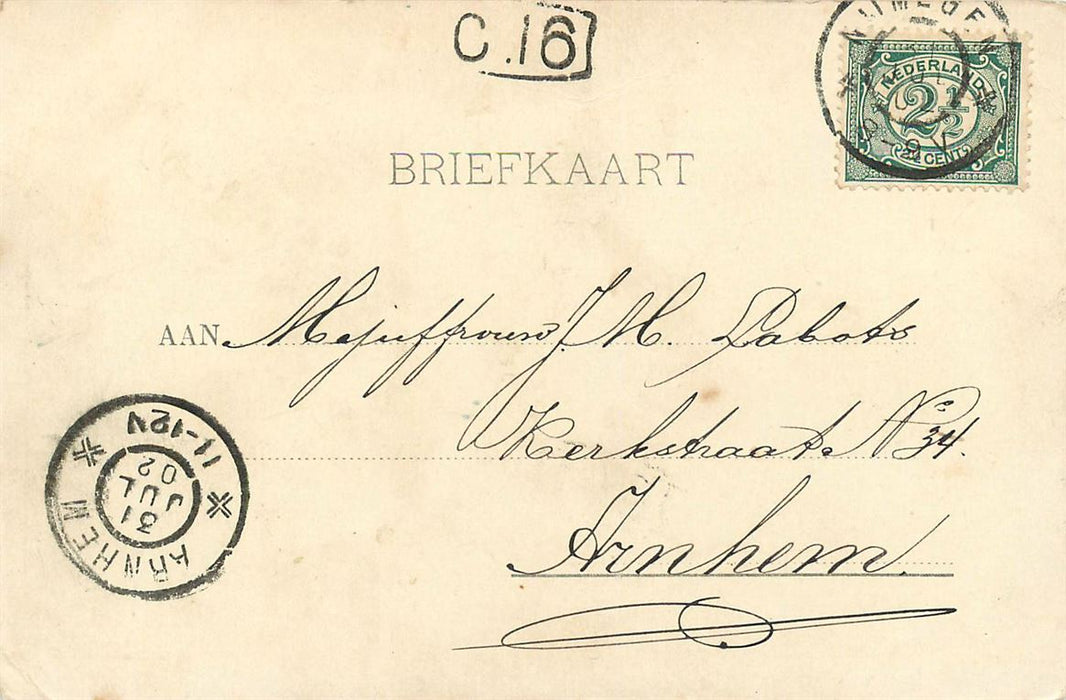 C.16
NIJMEGEN
8-9V
NEDERLAND
2½
2½ CENT
BRIEFKAART
AAN Mejuffrouw J. M. Labots
Kerkstraat No 34.
Arnhem.
ARNHEM
31
JUL
02
11-12V